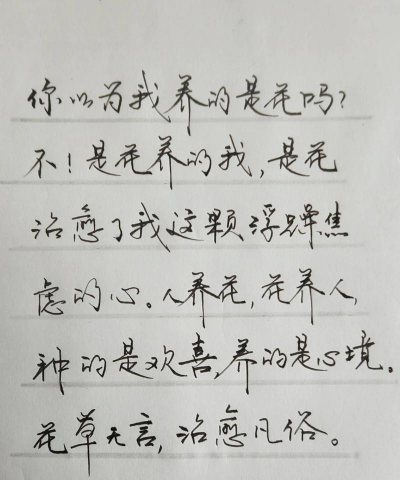 你以为我养的是花吗?
不!是花养的我,是花
治愈了我这颗浮躁焦
虑的心。人养花,花养人,
种的是欢喜,养的是心境。
花草无言,治愈凡俗。